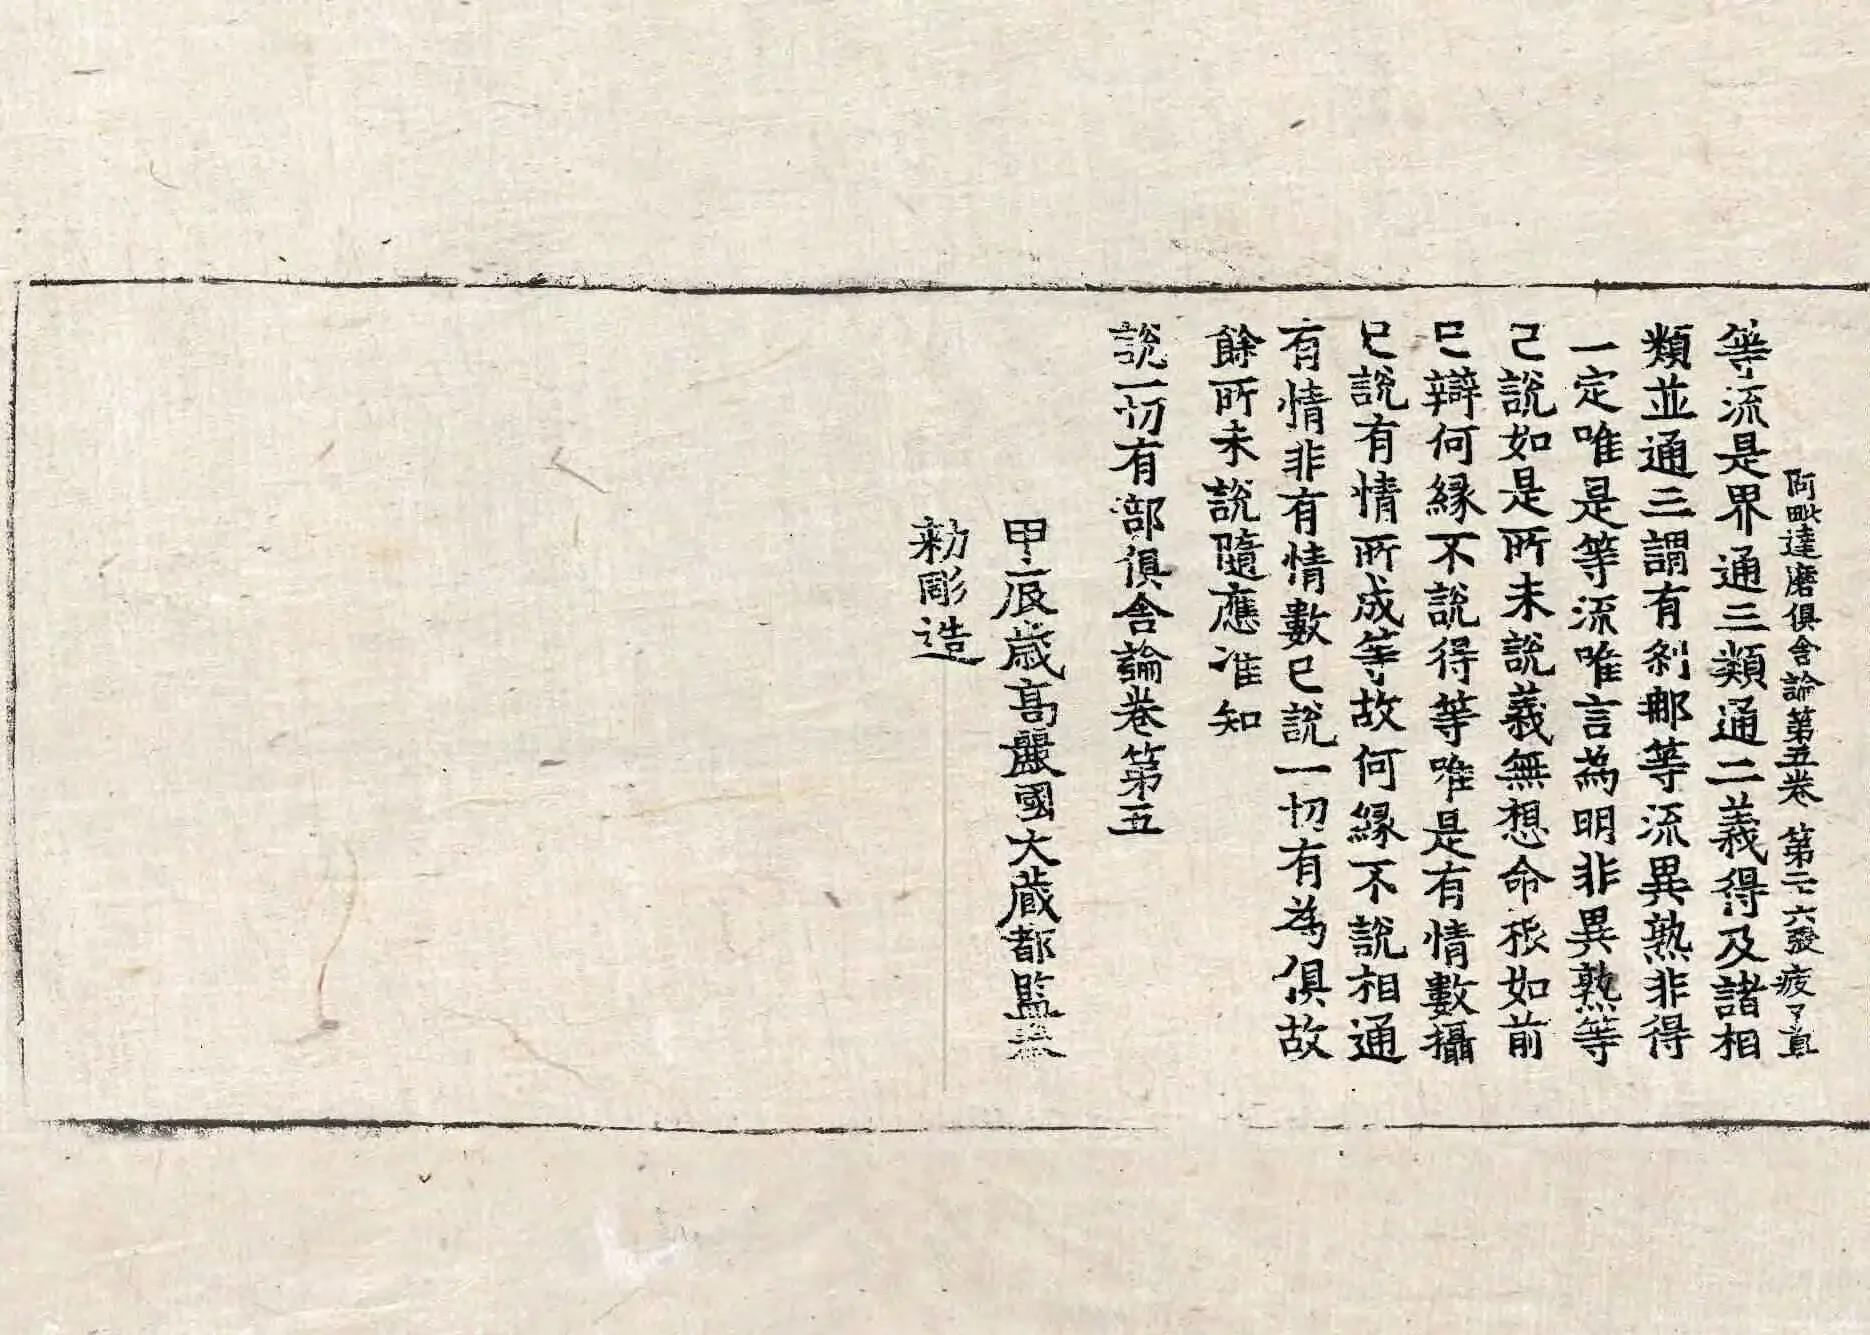 阿毗達磨俱舍論第五卷 第二六張 疲
等流是界通三類通二義得及諸相
類並通三謂有刹那等流異熟非得
一定唯是等流唯言為明非異熟等
已說如是所未說義無想命根如前
已辯何緣不說得等唯是有情數攝
已說有情所成等故何緣不說相通
有情非有情數已說一切有為俱故
餘所未說隨應准知
說一切有部俱舍論卷第五
甲辰歲高麗國大藏都監奉
勅彫造